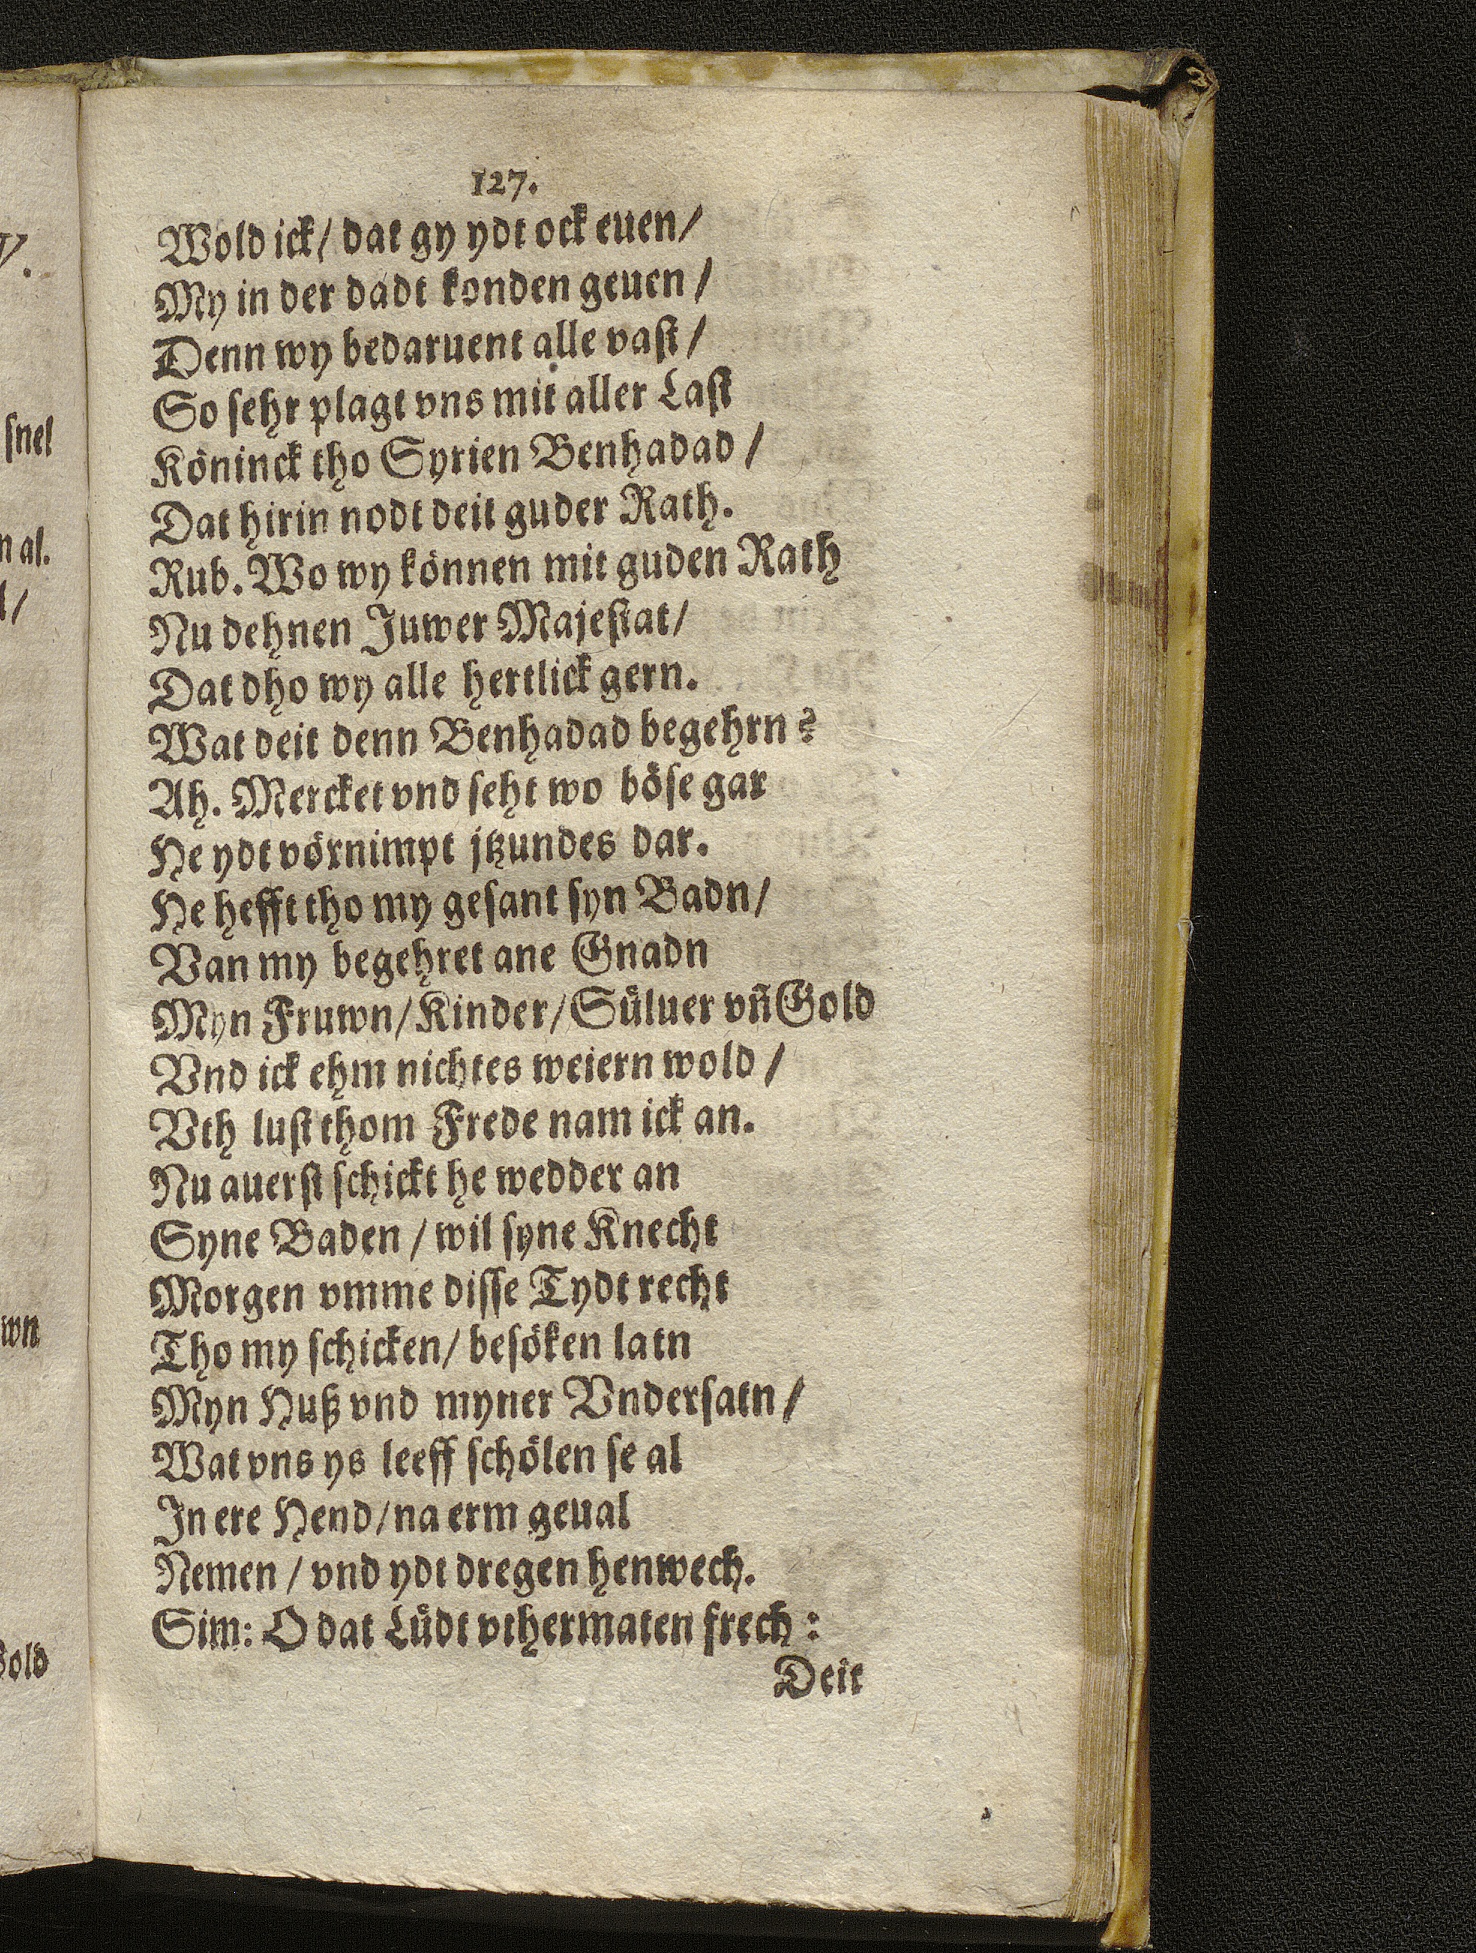 127.
Wold ick/ dat gy ydt ock euen/
My in der dadt konden geuen /
Denn wy bedaruent alle vast /
So sehr plagt vns mit aller Last
Köninck tho Syrien Benhadad /
Dat hirin nodt deit guder Rath.
Rub. Wo wy können mit guden Rath
Nu dehnen Juwer Majestat/
Dat dho wy alle hertlick gern.
Wat deit denn Benhadad begehrn?
Ah. Mercket vnd seht wo böse gar
He ydt vörnimpt jtzundes dar.
He hefft tho my gesant syn Badn/
Van my begehret ane Gnadn
Myn Fruwn/ Kinder/ Süluer vn̄ Gold
Vnd ick ehm nichtes weiern wold /
Vth lust thom Frede nam ick an.
Nu auerst schickt he wedder an
Syne Baden / wil syne Knecht
Morgen vmme disse Tydt recht
Tho my schicken/ besöken latn
Myn Huß vnd myner Vndersatn /
Wat vns ys leeff schölen se al
In ere Hend/ na erm geual
Nemen / vnd ydt dregen henwech.
Sim: O dat Lüdt vthermaten frech :
Deit
snel
n al.
l/
wn